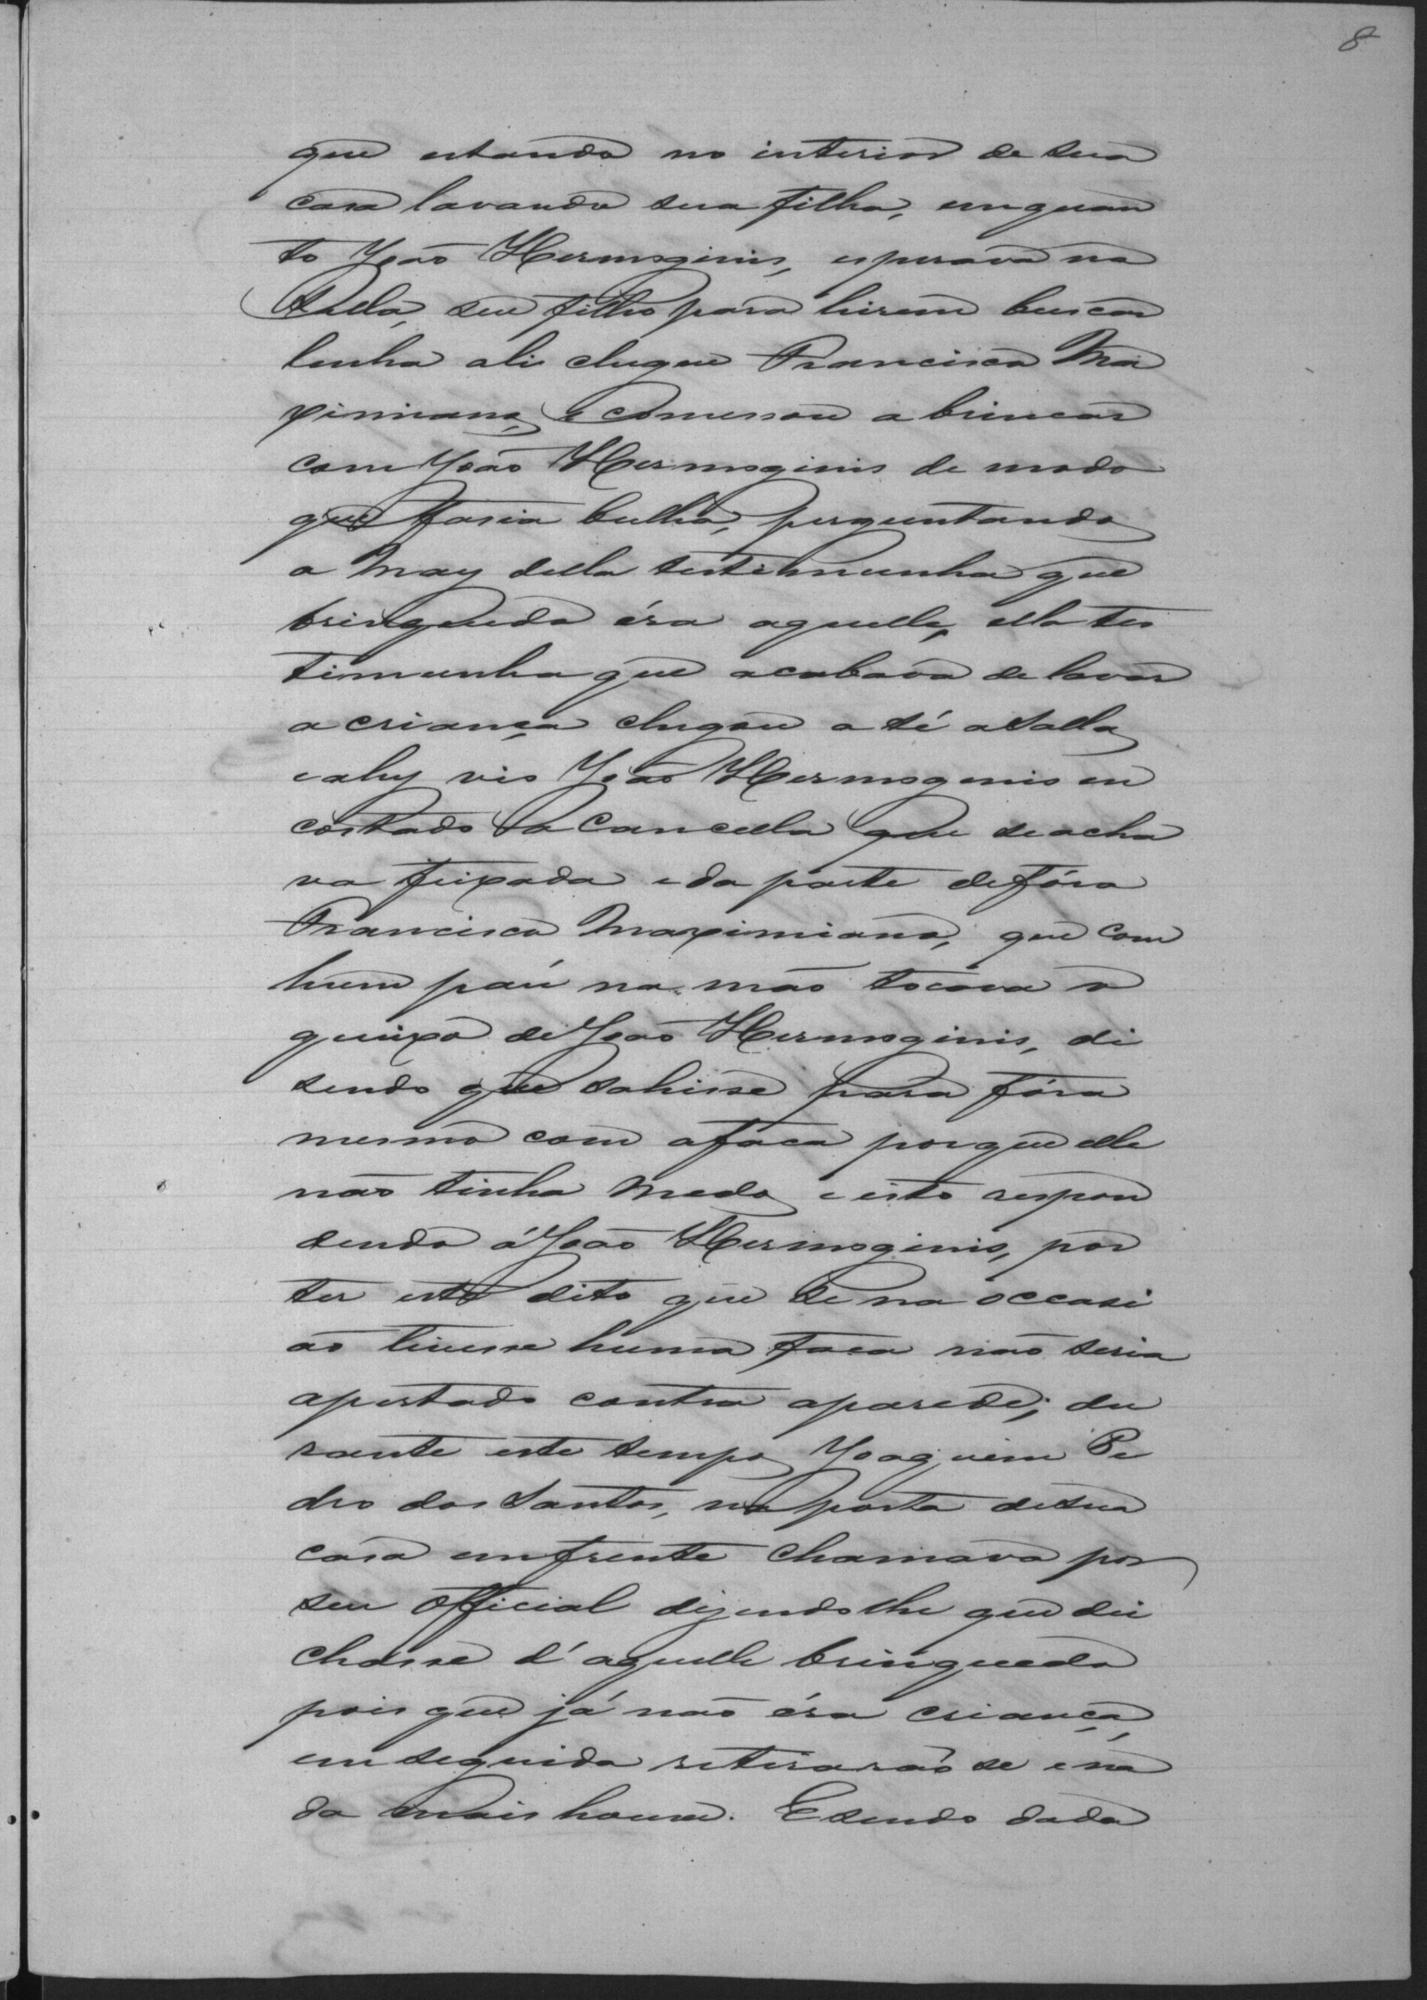 8
que estando no interior de sua
casa lavando sua filha, emquan
to João Hermoginis, esperava na
Salla, seu filho para hirem buscar
lenha ali chegue Francisco Ma
ximiano, e comessou a brincar
com João Hermoginis de modo
que fasia bulha, perguntando
a May della testimunha que
brinquedo éra aquelle, ella tes
timunha que acabava de lavar
a criança chegou a té a Salla
e ahy vio João Hermogenis en
costado a Cancella que se acha
va feixada e da parte de fóra
Francisco Maximiano, que com
hum páu na mão tocava o
queixo de João Hermoginis, di
sendo que sahisse para fóra
mesmo com a faca porque elle
não tinha medo, e isto respon
dendo á João Hermoginis, por
ter este dito que se na occasi
ão tivesse huma faca não seria
apertado contra a parede; du
rante este tempo, Joaquim Pe
dro dos Santos, na porta de sua
casa em frente chamava por
seu Official dizendo lhe que dei
chasse d'aquelle brinquedo
pois que já não éra criança,
em seguida retirarão se e na
da mais houve. E sendo dada